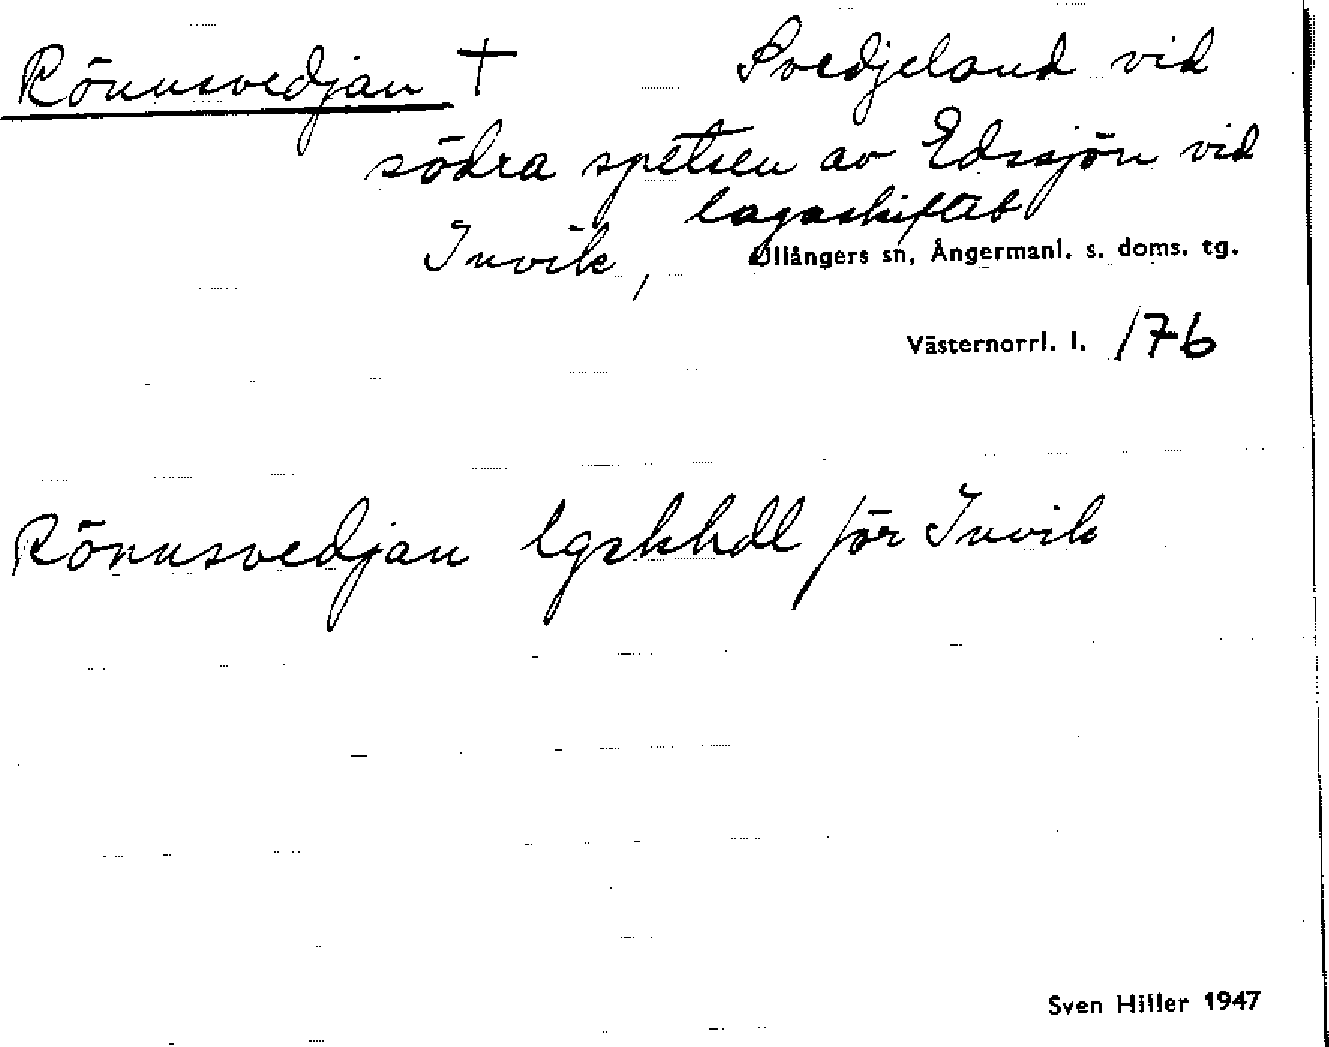 Rönnsvedjan † Svedjeland vid
södra spetsen av Edssjön vid
lagaskiftet
Invik, Ullångers sn, Ångermanl. s. doms. tg.
Västernorrl. l. 176
Rönnsvedjan lgskhdl för Invik
Sven Hiller 1947